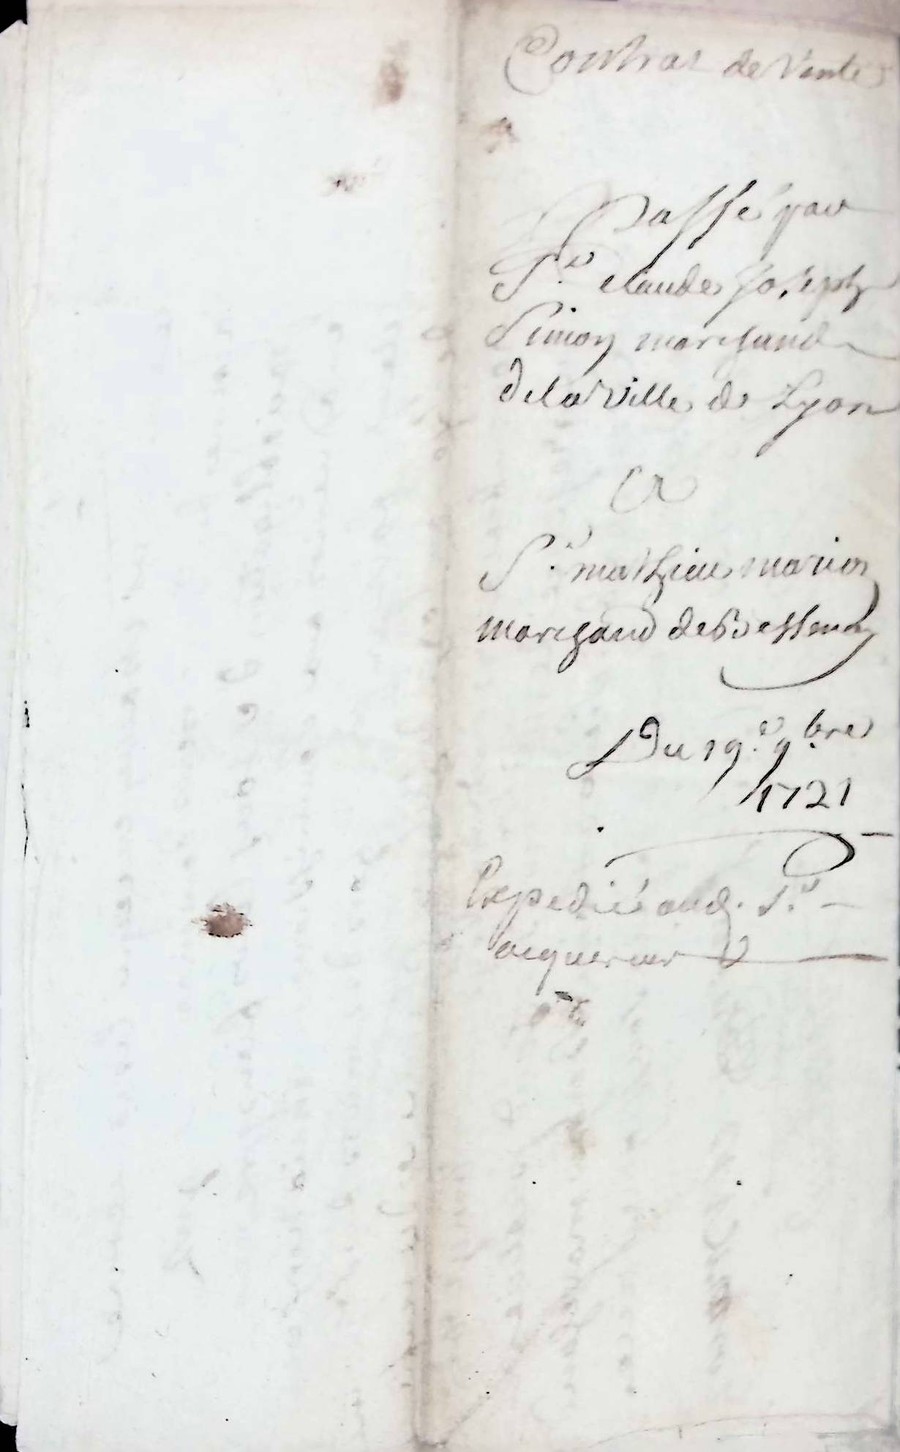 Contrat de Vente
Passé par
Sr. claude Joseph
Simon marchand
de la Ville de Lyon
A
Sr. mathieu marion
marchand de Bessenay
Du 19e. 9bre
1721
Expedié aud. Sr.
acquereur